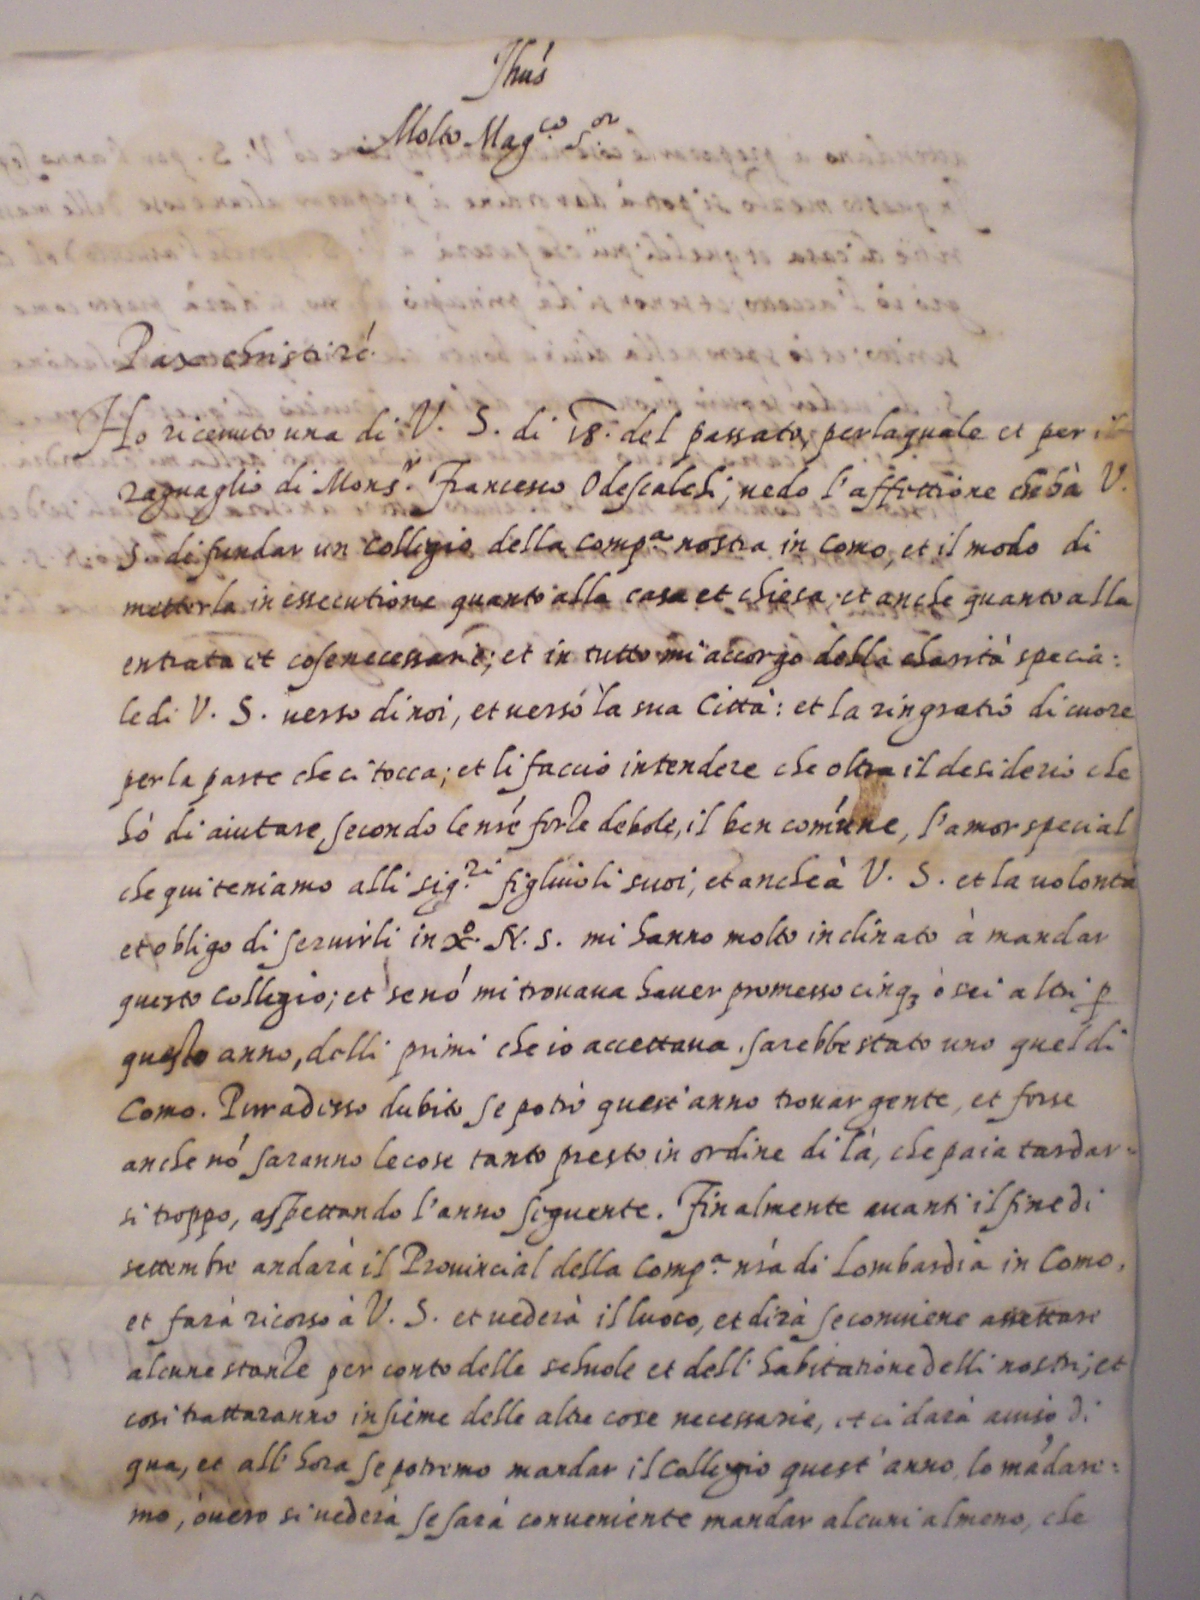 Jhus
Molto Mag.co S.or
Pax christi ré.
Ho riceuuto una di V. S. di 18. del passato, per laquale et per il
raguaglio di Mons.r Francesco Odescalchi, uedo l'affettione che hà V.
S. di fundar un collegio della comp.a nostra in Como, et il modo di
metterla in essecutione quanto alla casa et chiesa, et anche quanto alla
entrata et cose necessarie; et in tutto mi accorgo della charità specia:
le di V. S. uerso di noi, et uerso la sua Città: et la ringratio di cuore
per la parte che ci tocca; et li faccio intendere che oltra il desiderio che
hò di aiutare, secondo le nré forze debole, il ben comúne, l'amor special
che qui teniamo alli sig.ri figliuoli suoi, et anche à V. S. et la uolontà
et obligo di seruirli in xo. N. S. mi hanno molto inclinato à mandar
questo collegio; et se nó mi trouaua hauer promesso cinq3 ò sei altri p
questo anno, delli primi che io accettaua, sarebbe stato uno quel di
Como. Pur adesso dubito se potrò quest'anno trouar gente, et forse
anche nó saranno le cose tanto presto in ordine di là, che paia tardar-
si troppo, aspettando l'anno seguente. Finalmente auanti il fine di
settembre andarà il Prouincial della Comp.a nrá di Lombardia in Como,
et farà ricorso à V. S. et uederà il luoco, et dirà se conuiene assettare
alcune stanze per conto delle schuole et dell'habitatione delli nostri; et
cosi trattaranno insieme delle altre cose necessarie, et ci darà auiso di
qua, et all'hora se potremo mandar il collegio quest'anno lo mádare:
mo, óuero si uederà se sarà conueniente mandar alcuni almeno, che